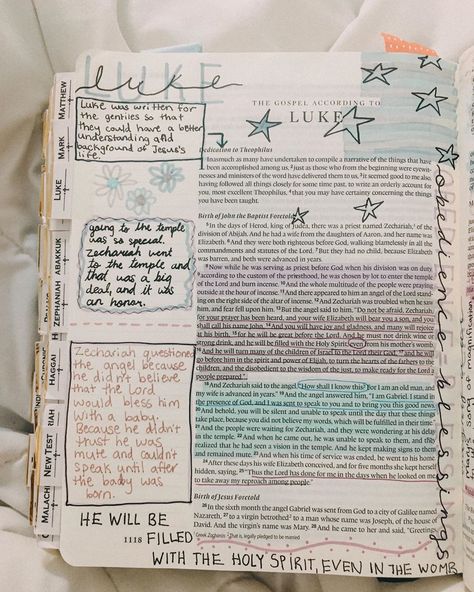 LUKE
luke
Luke was written for
the gentiles so that
they could have a better
understanding and
background of Jesus's
life.
going to the temple
was so special.
zechariah went
to the temple and
that was a big
deal, and it was
an honor.
Zechariah questioned
the angel because
he didn't believe
that the Lord
would bless him
with a baby.
Because he didn't
trust he was
mute and couldn't
speak until after
the baby was
born.
HE WILL BE
FILLED
WITH THE HOLY SPIRIT, EVEN IN THE WOMB
MATTHEW
MARK
LUKE
HABAKKUK
ZEPHANIAH
HAGGAI
NEW TEST
MALACHI
THE GOSPEL ACCORDING TO
LUKE
Dedication to Theophilus
1 Inasmuch as many have undertaken to compile a narrative of the things that have
been accomplished among us, 2 just as those who from the beginning were eyewitnesses
and ministers of the word have delivered them to us, 3 it seemed good to me also,
having followed all things closely for some time past, to write an orderly account for
you, most excellent Theophilus, 4 that you may have certainty concerning the things
you have been taught.
Birth of John the Baptist Foretold
5 In the days of Herod, king of Judea, there was a priest named Zechariah, of the
division of Abijah. And he had a wife from the daughters of Aaron, and her name was
Elizabeth. 6 And they were both righteous before God, walking blamelessly in all the
commandments and statutes of the Lord. 7 But they had no child, because Elizabeth
was barren, and both were advanced in years.
8 Now while he was serving as priest before God when his division was on duty,
9 according to the custom of the priesthood, he was chosen by lot to enter the temple
of the Lord and burn incense. 10 And the whole multitude of the people were praying
outside at the hour of incense. 11 And there appeared to him an angel of the Lord standing
on the right side of the altar of incense. 12 And Zechariah was troubled when he saw
him, and fear fell upon him. 13 But the angel said to him, "Do not be afraid, Zechariah,
for your prayer has been heard, and your wife Elizabeth will bear you a son, and you
shall call his name John. 14 And you will have joy and gladness, and many will rejoice
at his birth, 15 for he will be great before the Lord. And he must not drink wine or
strong drink, and he will be filled with the Holy Spirit, even from his mother's womb.
16 And he will turn many of the children of Israel to the Lord their God, 17 and he will
go before him in the spirit and power of Elijah, to turn the hearts of the fathers to the
children, and the disobedient to the wisdom of the just, to make ready for the Lord a
people prepared."
18 And Zechariah said to the angel, "How shall I know this? For I am an old man, and
my wife is advanced in years." 19 And the angel answered him, "I am Gabriel. I stand in
the presence of God, and I was sent to speak to you and to bring you this good news.
20 And behold, you will be silent and unable to speak until the day that these things
take place, because you did not believe my words, which will be fulfilled in their time."
21 And the people were waiting for Zechariah, and they were wondering at his delay
in the temple. 22 And when he came out, he was unable to speak to them, and they
realized that he had seen a vision in the temple. And he kept making signs to them
and remained mute. 23 And when his time of service was ended, he went to his home.
24 After these days his wife Elizabeth conceived, and for five months she kept herself
hidden, saying, 25 "Thus the Lord has done for me in the days when he looked on me,
to take away my reproach among people."
Birth of Jesus Foretold
26 In the sixth month the angel Gabriel was sent from God to a city of Galilee named
Nazareth, 27 to a virgin betrothed to a man whose name was Joseph, of the house of
David. And the virgin's name was Mary. 28 And he came to her and said, "Greetings,
Greek Zacharias That is, legally pledged to be married
1118
obedience + blessings